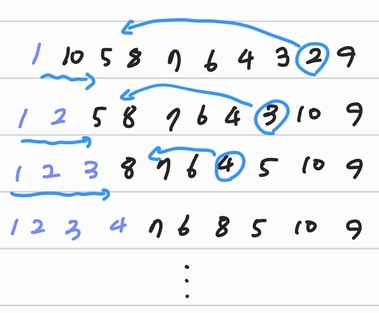 1 10 5 8 7 6 4 3 2 9
1 2 5 8 7 6 4 3 10 9
1 2 3 8 7 6 4 5 10 9
1 2 3 4 7 6 8 5 10 9
⋮